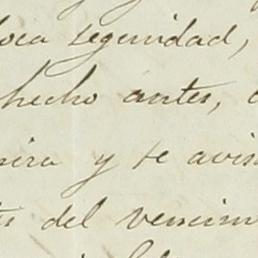 poca seguridad,
hecho antes,
y te avis
del vencim